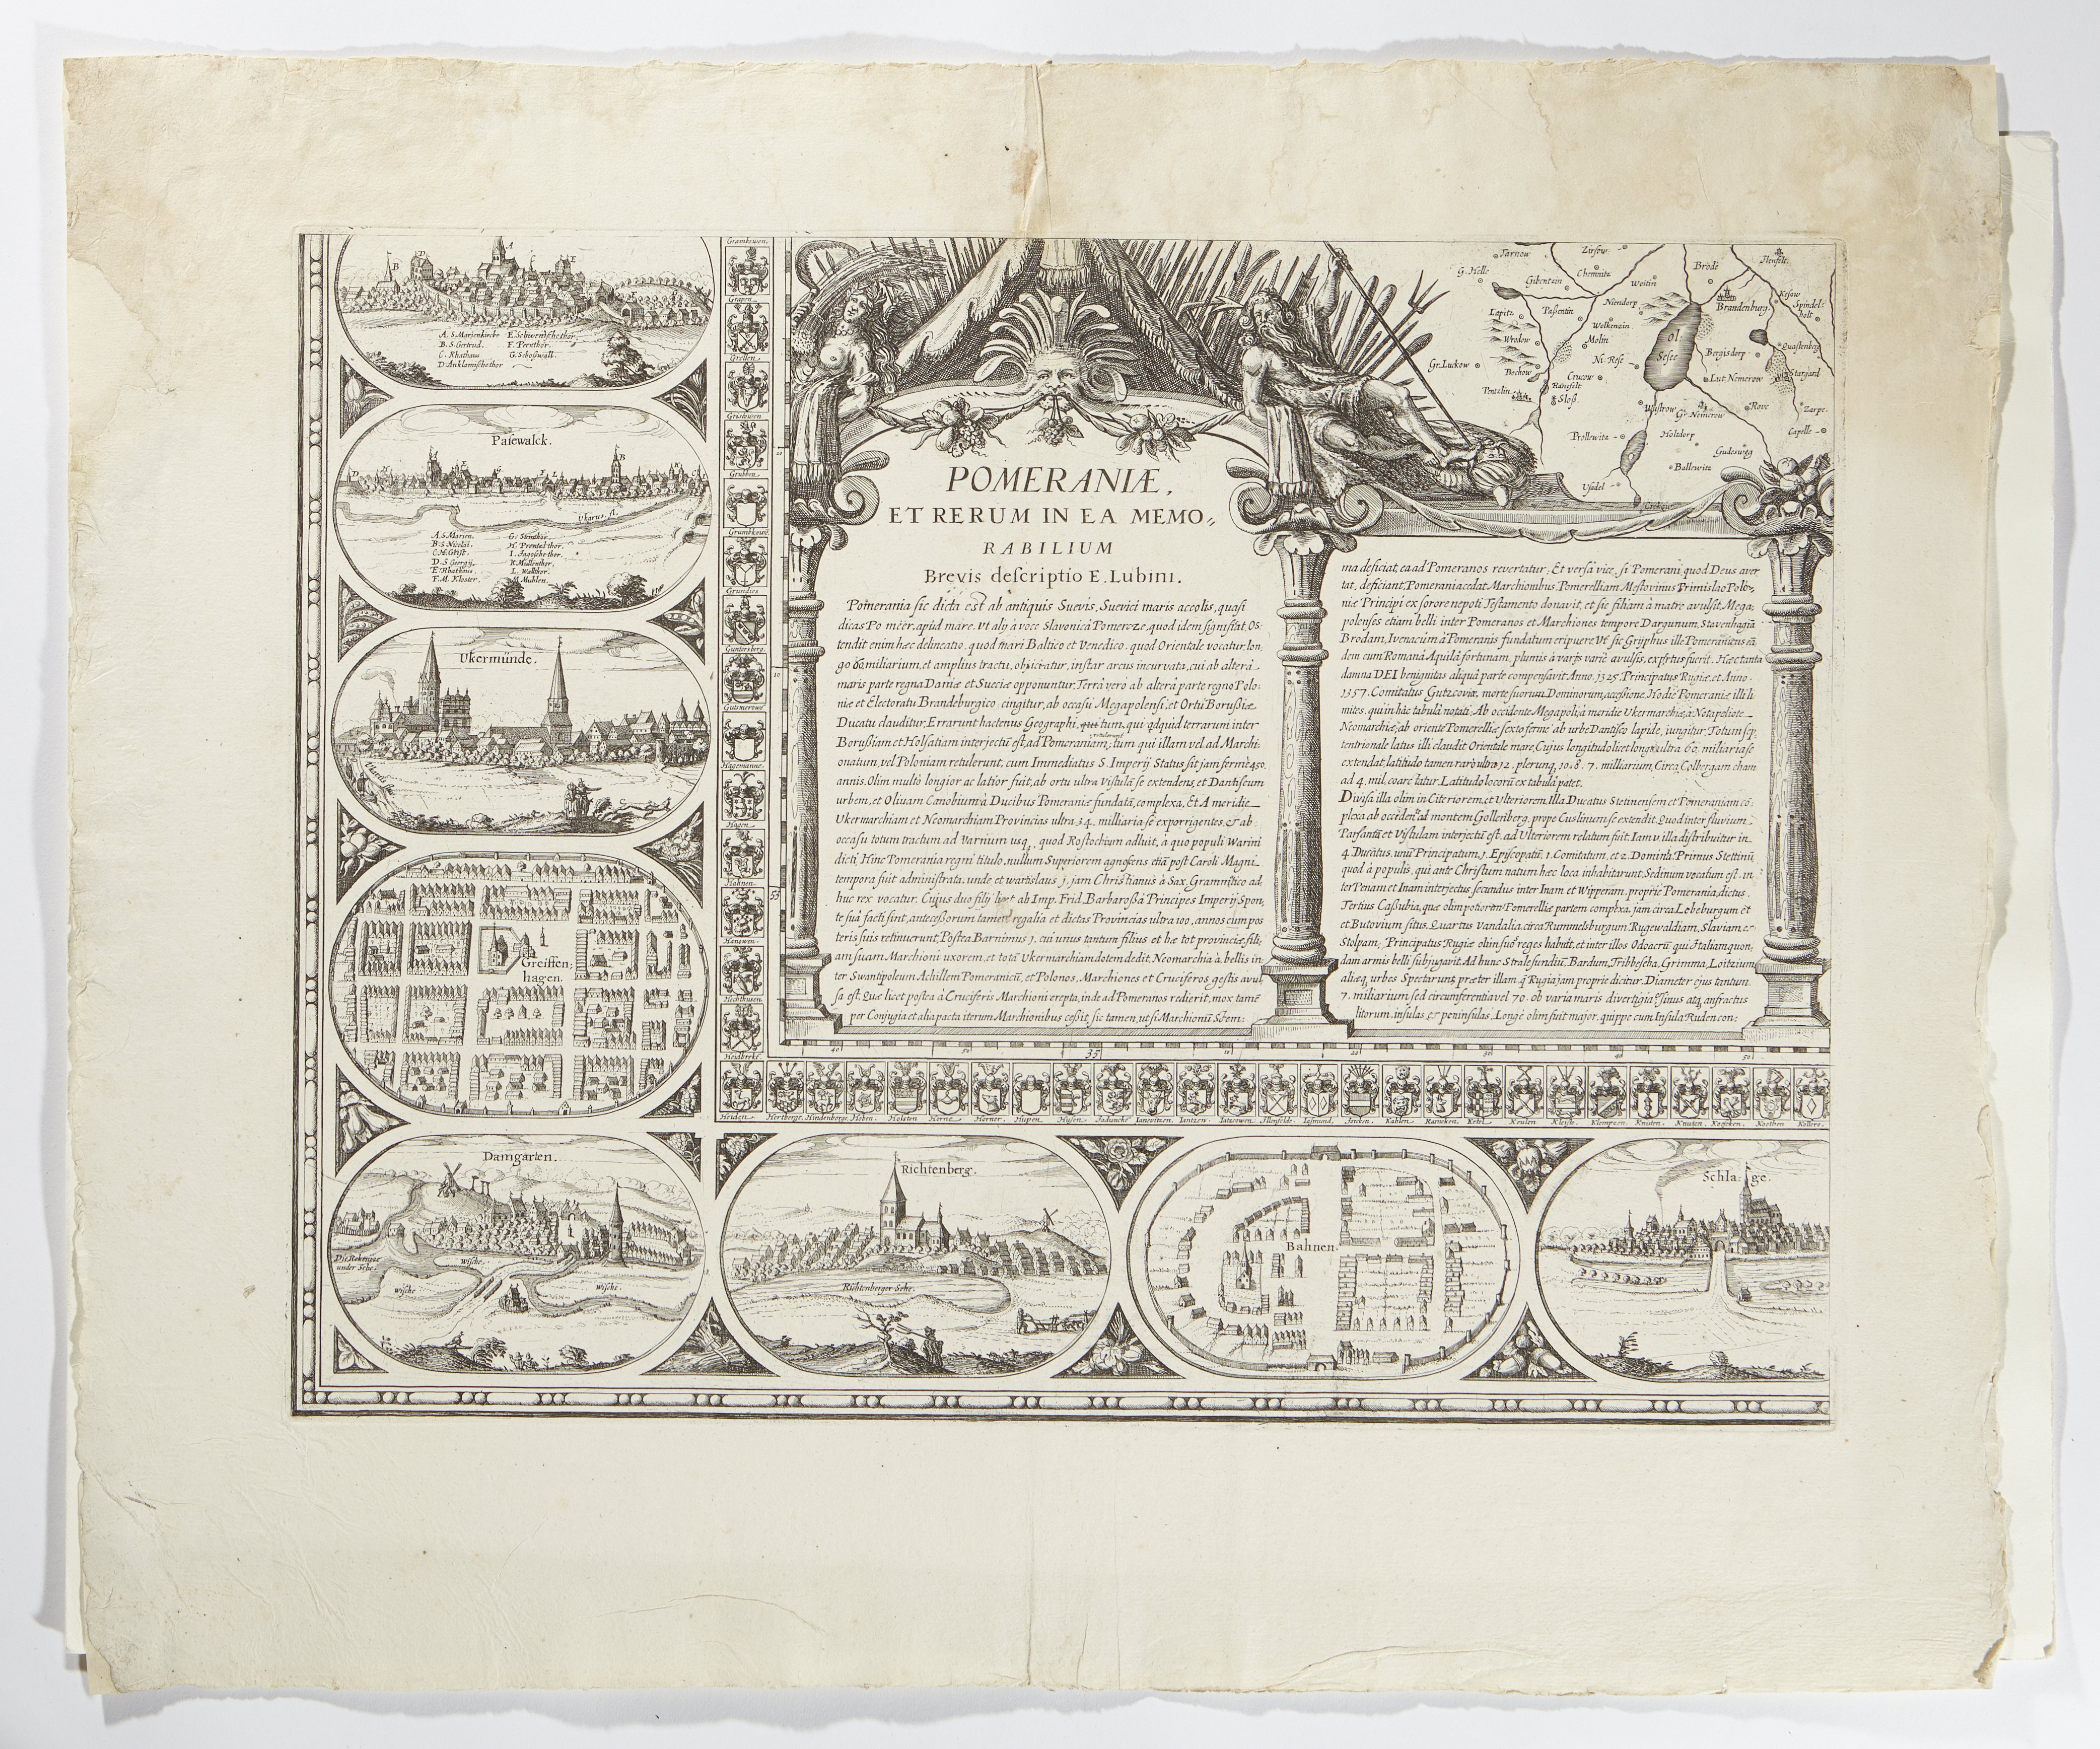 A. S. Marienkirche
B. S. Gertrud.
C. Rhathaus
D. Anklamischethor
F. Prenthor.
Pasewalck.
Ukarus fl.
A. S. Marien.
B. S. Nicolai.
D. S. Georgij.
E. Rhathaus.
F. M. Kloster.
G. Stinthor.
H. Prentzl thor.
K. Mullenthor.
L. Wallthor.
M. Muhlen.
Ukermünde.
Greiffen-
hagen.
Damgarten.
under Sehe.
Wische.
wische
Wische.
Richtenberg.
Richtenberger Sehe.
Bahnen.
Schla-ge.
Grambowen.
Grapen.
Grellen.
Gristowen
Grubben.
Grumbkowe.
Guntersberg.
Hagemanne.
Hagen.
Hahnen.
Hanowen.
Hechthusen
Heidbreke.
Heiden. Hertberge. Hindenberge. Heben. Holsten Horne. Horner. Hupen. Husen. Iasmund. Kahlen. Ramcken. Ketel. Keulen Kleiste. Klempzen. Knuten. Koethen Kollere.
Tarnow
Zirsow
G. Helle
Gibentzin
Chemnitz
Woitin
Brode
Brandenburg
Kesow
Lapitz
Paßentin
Niendorp
Wolkenzin
Wrodow
Molin
Ol
Sesee
Bergisdorp
Quastenberg
Stargard
Gr. Luckow
Bochow
N. Rese
Crucow
Lut. Nemerow
Pentzlin
Ransfelt
Sloß
Wustrow
Gr. Nemerow
Rove
Zarpe.
Prillewitz
Holtdorp
Capelle
Ballewitz
Usadel
POMERANIÆ,
ET RERUM IN EA MEMO,,
RABILIUM
Brevis descriptio E. Lubini.
Pomerania sic dicta est ab antiquis Suevis, Suevici maris accolis, quasi
dicas Po méer, apud mare. Vt alij à voce Slavonicâ Pomerze, quod idem significat. Os-
tendit enim hæc delineatio, quod mari Baltico et Venedico, quod Orientale vocatur, lon,
go 60 miliarium, et amplius tractu, obijciatur, instar arcus incurvata, cui ab alterâ
maris parte regna Daniæ et Sueciæ opponuntur. Terrâ verò ab alterâ parte regno Polo-
niæ et Electoratu Brandeburgico, cingitur, ab occasu Megapolensi, et Ortu Borußiæ
Ducatu clauditur. Errarunt hactenus Geographi, tum, qui qdquid terrarum inter
Borußiam et Holsatiam interjectû est, ad Pomeraniam, tum qui illam vel ad Marchi-
onatum, vel Poloniam retulerunt, cum Immediatus S. Imperij Status sit jam fermè 450.
annis. Olim multò longior ac latior fuit, ab ortu ultra Vistulâ se extendens, et Dantiscum
urbem, et Olivam Cænobium à Ducibus Pomeraniæ fundatâ, complexa. Et A meridie
Ukermarchiam et Neomarchiam Provincias ultra 34. milliaria se exporrigentes, & ab
occasu totum tractum ad Varnium usq, quod Rostochium adluit, a quo populi Warini
dicti. Hinc Pomerania regni titulo, nullum Superiorem agnoscens etiâ post Caroli Magni
tempora fuit administrata, unde et wartislaus j. jam Christianus à Sax. Grammatico ad,
huc rex vocatur. Cujus duo filij licet ab Imp. Frid. Barbaroßâ Principes Imperij Spon,
te suâ facti sint, anteceßorum tamen regalia et dictas Provincias ultra 100. annos cum pos
teris suis retinuerunt. Postea Barnimus j. cui unus tantum filius et hæ tot provinciæ, fili,
am suam Marchioni uxorem, et totâ Vkermarchiam dotem dedit, Neomarchia à bellis in,
ter Swantipolcum Achillem Pomeranicû, et Polonos, Marchiones et Cruciferos gestis avul
sa est. Quæ licet postea à Cruciferis Marchioni erepta, inde ad Pomeranos redierit, mox tamê
per Conjugia et alia pacta iterum Marchionibus ceßit, sic tamen, ut si Marchionû Stem-
ma deficiat, ea ad Pomeranos revertatur; Et versâ vice, si Pomerani, quod Deus aver
tat, deficiant, Pomerania cedat Marchionibus. Pomerelliam Mestovinus Primislao Polo-
niæ Principi ex sorore nepoti Testamento donavit, et sic filiam à matre avulsit. Mega-
polenses etiam belli inter Pomeranos et Marchiones tempore Dargunum, Stavenhagiâ
Brodam, Ivenacum à Pomeranis fundatum eripuere. Vt sic Gryphus ille Pomeraniens eâ,
dem cum Romanâ Aquilâ fortunam, plumis à varijs variè avulsis, expertus fuerit. Hæc tanta
damna DEI benignitas aliquâ parte compensavit. Anno. 1325. Principatus Rugiæ, et Anno.
1357. Comitatus Gutzcoviæ, morte suorum Dominorum, acceßione. Hodiè Pomeraniæ illi li
mites, qui in hâc tabulâ notati. Ab occidente Megapoli, à meridie Vkermarchiæ, à Notapeliote
Neomarchiæ, ab oriente Pomerelliæ sexto fermè ab urbe Dantisco lapide, jungitur. Totum sep,
tentrionale latus illi claudit Orientale mare. Cujus longitudo licet longè ultra 60. miliaria se
extendat, latitudo tamen rarò ultra 12. plerunq, 10. 8. 7. milliarium, Circa Colbergam etiam
ad 4. mil. coarctatur. Latitudo locorû ex tabulâ patet.
Divisa illa olim in Citeriorem, et Ulteriorem. Illa Ducatus Stetinensem, et Pomeraniam cô-
plexa ab occident ad montem Gollenberg, prope Cuslinum se extendit. Quod inter fluvium
Parsantû et Vistulam interjectû est, ad Ulteriorem relatum fuit. Iam v. illa distribuitur in
4. Ducatus, unû Principatum, 1. Episcopatû, 1. Comitatum, et 2. Dominia. Primus Stettinû,
quod à populis, qui ante Christum natum hæc loca inhabitarunt, Sedinum vocatum est. in
ter Penam et Inam interjectus, secundus inter Inam et Wipperam, propriè Pomerania, dictus.
Tertius Caßubia, quæ olim potiorem Pomerelliæ partem complexa, jam circa Lobeburgum et
et Butovium situs. Quartus Vandalia, circa Rummelsburgum, Rugewaldiam, Slaviam, &
Stolpam. Principatus Rugiæ olim suos reges habuit, et inter illos Odoacrû qui Italiam quon,
dam armis belli subjugavit. Ad hunc Stralesundiû, Bardum, Tribbescha, Grimma, Loitzium
aliæq urbes Spectarunt, præter illam, q Rugia jam propriè dicitur. Diameter ejus tantum
7. miliarium, sed circumferentia vel 70. ob varia maris divertigia, sinus atq anfractus
litorum, insulas & peninsulas. Longè olim fuit major, quippe cum Insula Ruden con-
55
35